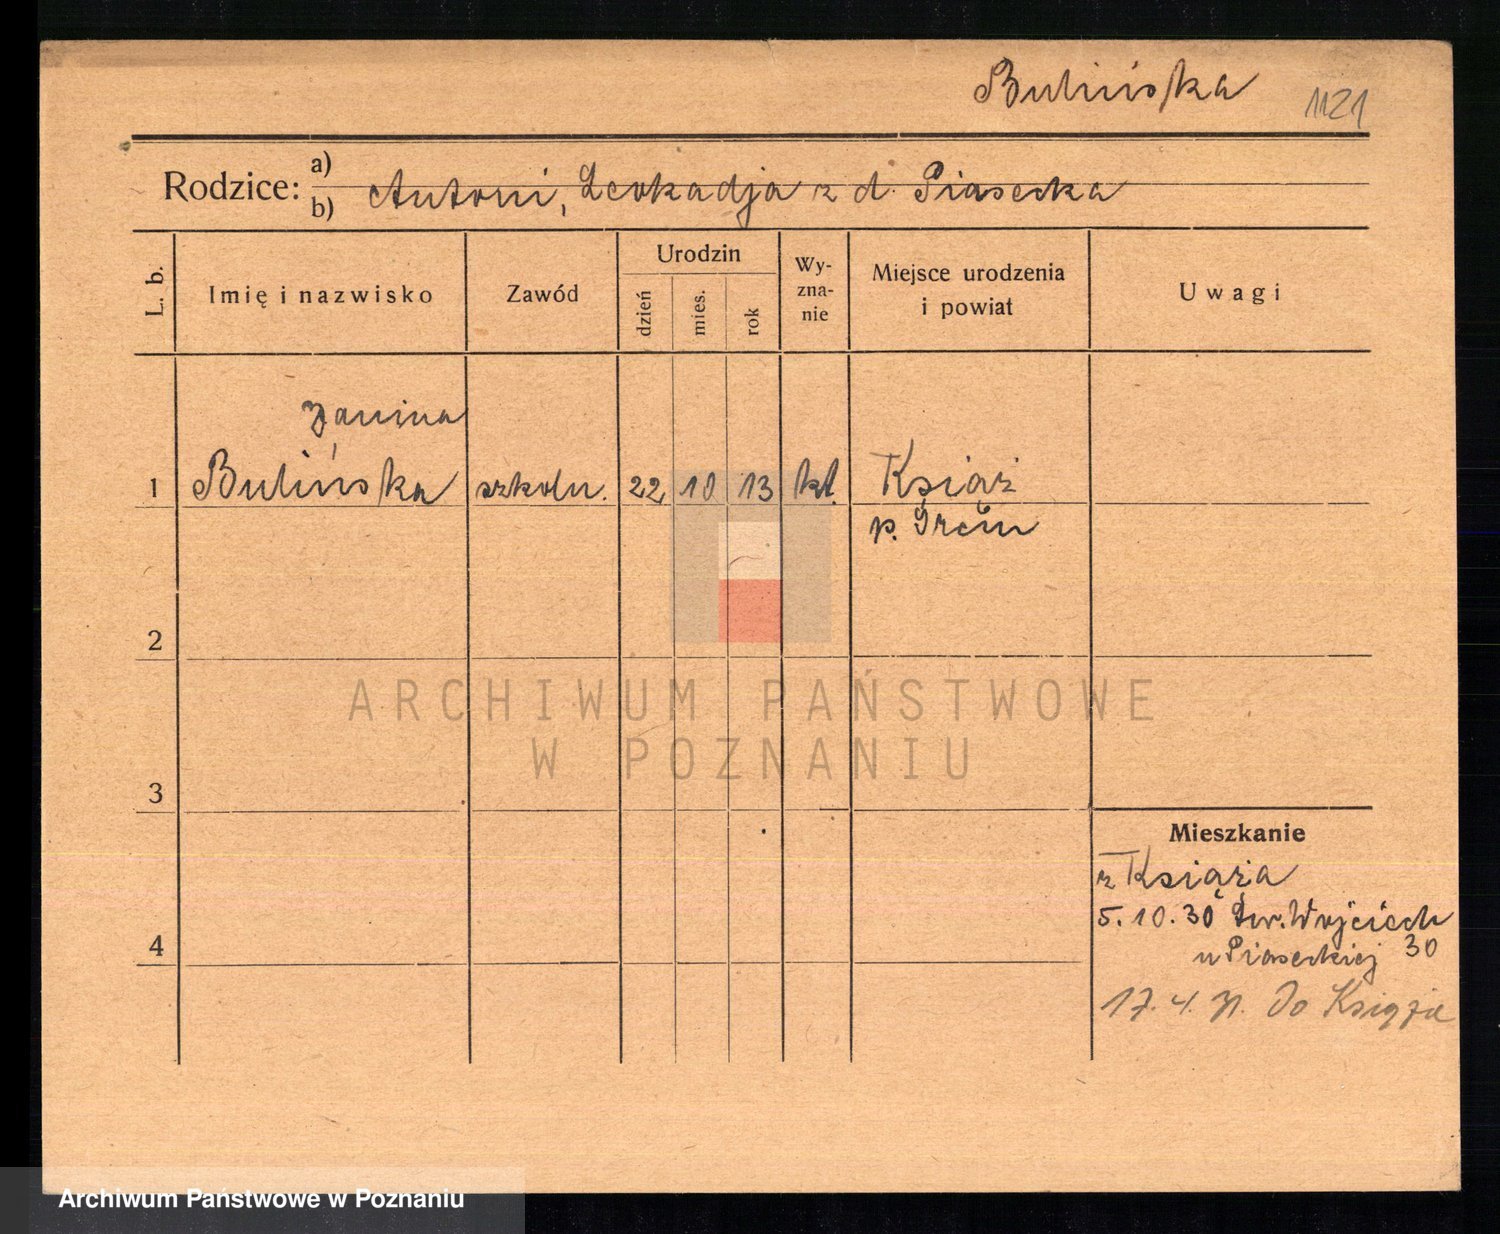 Bulińska 1121
Rodzice: a) b) Antoni, Leokadja z d. Piasecka
L. b.
Imię i nazwisko
Zawód
Urodzin
dzień
mies.
rok
Wy-
zna-
nie
Miejsce urodzenia
i powiat
Uwagi
Janina
1 Bulińska szkoln. 22 10 13 kt. Książ
p. Śrem
2
3
4
Mieszkanie
z Książa
5.10.30 Św. Wojciech
u Piaseckiej 30
17.4.31. Do Książa
ARCHIWUM PAŃSTWOWE
W POZNANIU
Archiwum Państwowe w Poznaniu